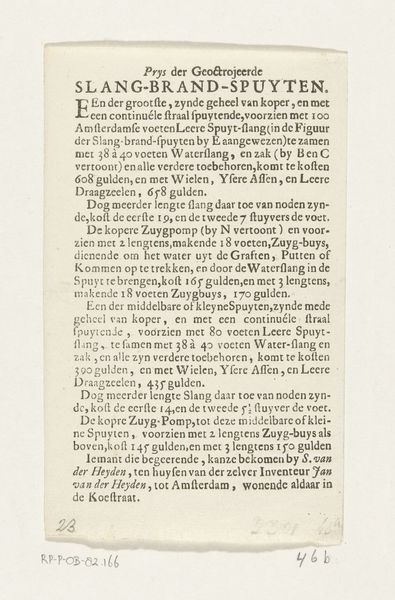 Prys der Geoctrojeerde
SLANG-BRAND-SPUYTEN.
EEn der grootste, zynde geheel van koper, en met
een continuéle straal spuytende, voorzien met 100
Amsterdamse voeten Leere Spuyt-slang (in de Figuur
der Slang-brand-spuyten by E aangewezen) te zamen
met 38 à 40 voeten Waterslang, en zak (by B en C
vertoont) en alle verdere toebehoren, komt te kosten
608 gulden, en met Wielen, Ysere Assen, en Leere
Draagzeelen, 658 gulden.
Dog meerder lengte slang daar toe van noden zyn-
de, kost de eerste 19, en de tweede 7 stuyvers de voet.
De kopere Zuygpomp (by N vertoont) en voor-
zien met 2 lengtens, makende 18 voeten, Zuyg-buys,
dienende om het water uyt de Graften, Putten of
Kommen op te trekken, en door de Waterslang in de
Spuyt te brengen, kost 165 gulden, en met 3 lengtens,
makende 18 voeten Zuygbuys, 170 gulden.
Een der middelbare of kleyne Spuyten, zynde mede
geheel van koper, en met een continuéle straal
spuytende, voorzien met 80 voeten Leere Spuyt-
slang, te samen met 38 à 40 voeten Water-slang en
zak, en alle zyn verdere toebehoren, komt te kosten
390 gulden, en met Wielen, Ysere Assen, en Leere
Draagzeelen, 435 gulden.
Dog meerder lengte Slang daar toe van noden zyn-
de, kost de eerste 14, en de tweede 5½ stuyver de voet.
De kopre Zuyg-Pomp, tot deze middelbare of klei-
ne Spuyten, voorzien met 2 lengtens Zuyg-buys als
boven, kost 145 gulden, en met 3 lengtens 150 gulden
Iemant die begeerende, kanze bekomen by S. van
der Heyden, ten huysen van der zelver Inventeur Jan
van der Heyden, tot Amsterdam, wonende aldaar in
de Koestraat.
23
RP-P-OB-82.166
46 b